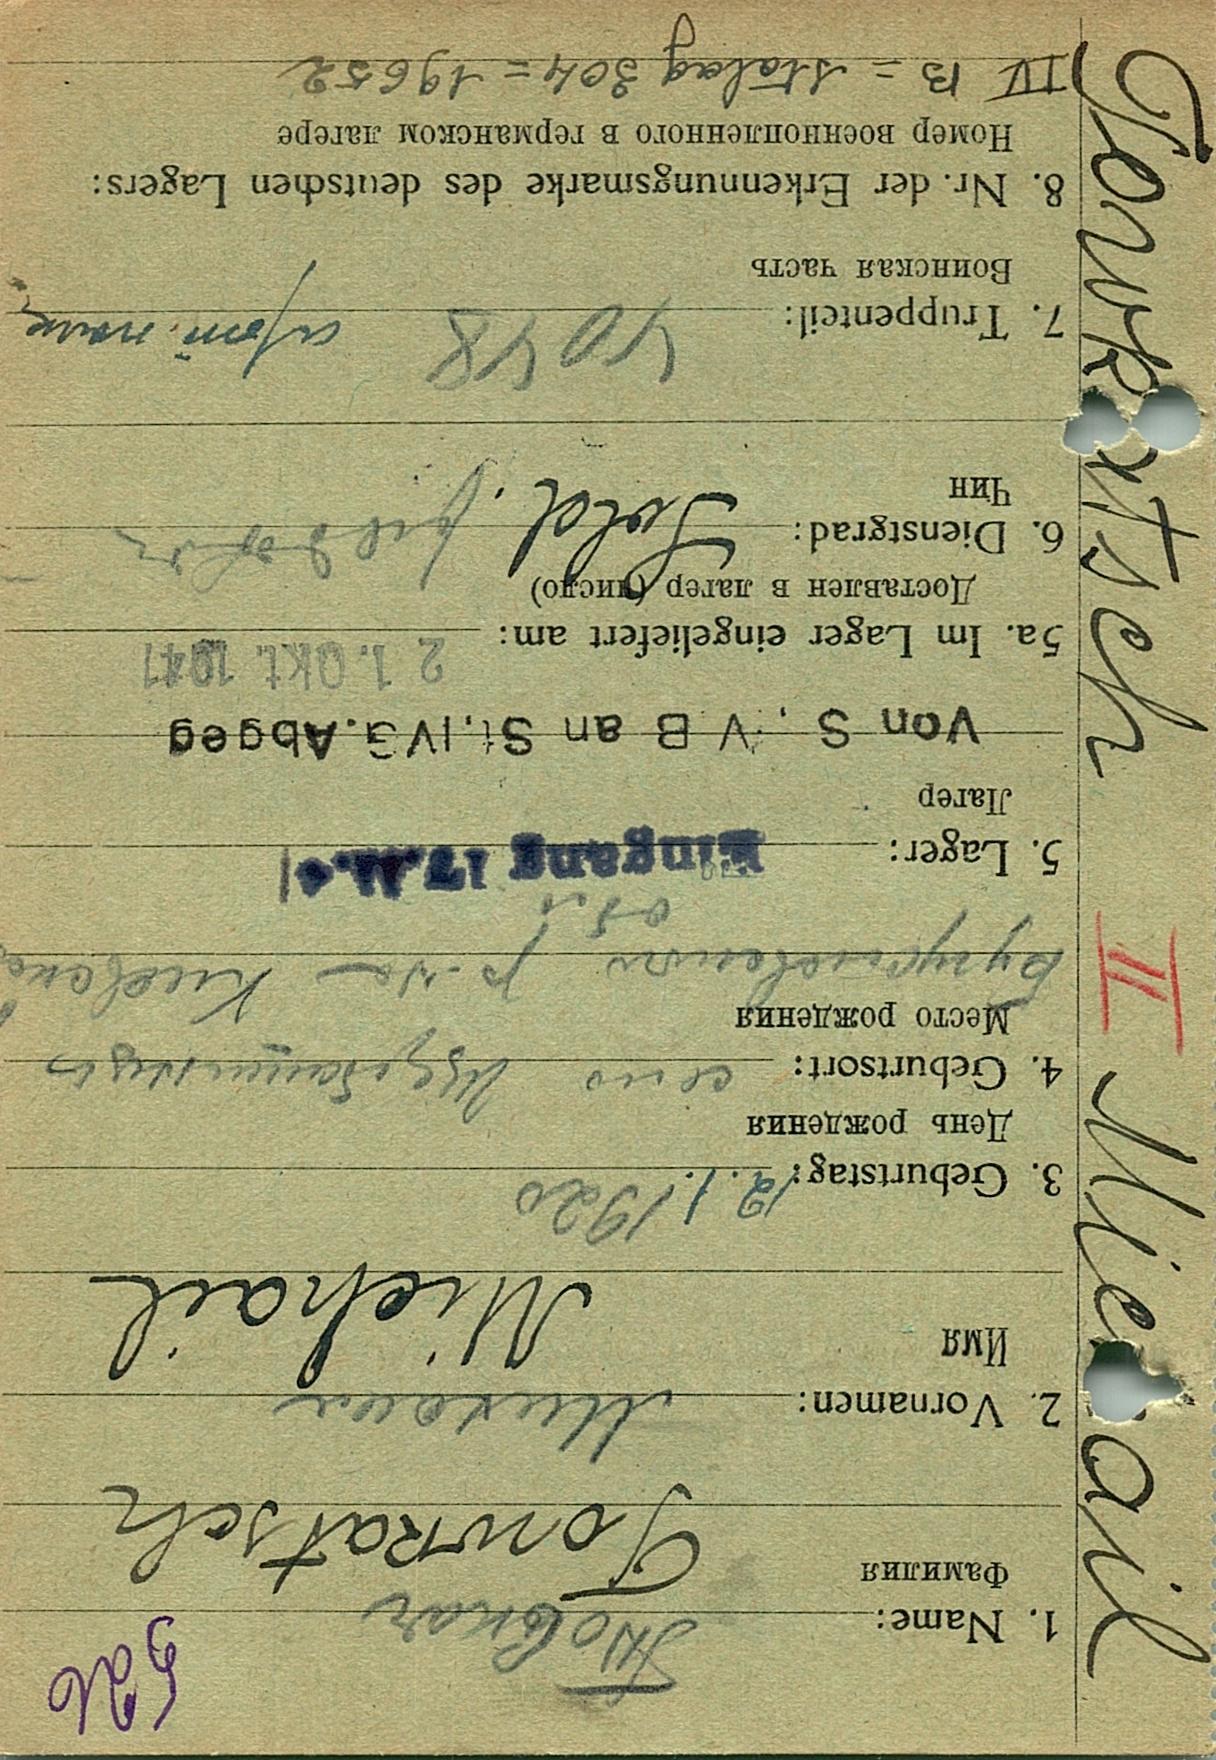 526
1. Name: Товкач
Фамилия
Towkatsch
2. Vornamen: Михаил
Имя
Michail
3. Geburtstag: 12.1.1920
День рождения
4. Geburtsort: село
Место рождения
р-на
5. Lager: Eingang 17.
Лагер
Von S, V B an St. IVG. Abgeg
5a. Im Lager eingeliefert am: 21. Okt. 1941
Доставлен в лагер (число)
6. Dienstgrad: Sold. рядовой
Чин
7. Truppenteil: 4048
Воинская часть
8. Nr. der Erkennungsmarke des deutschen Lagers:
Номер военнопленного в германском лагере
IV B = Stalag 304 = 19652
Towkatsch II Michail